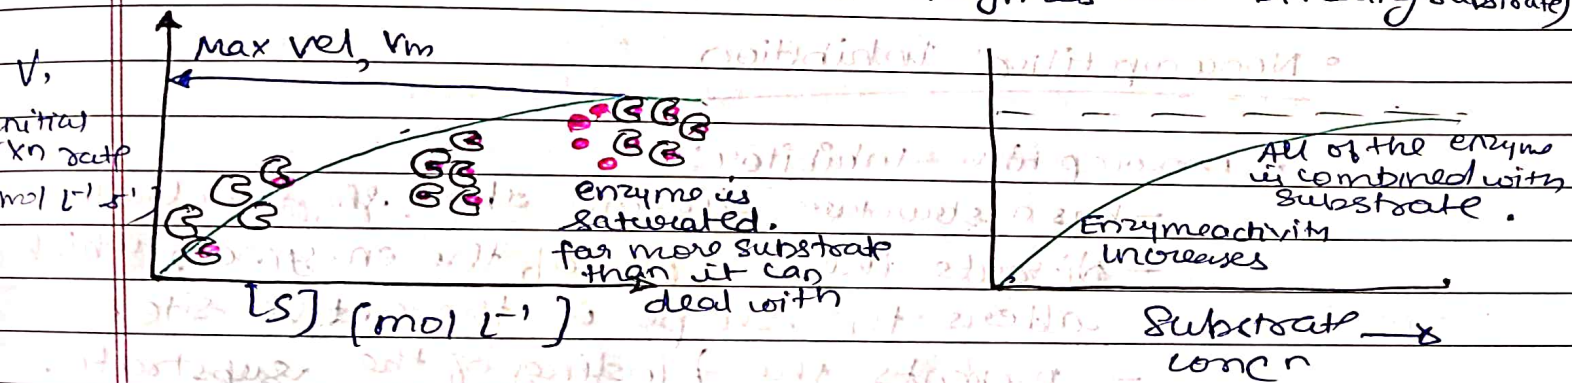 substrate)
Max vel, Vm
V,
nitial
xn rate
mol L⁻¹ s⁻¹
enzyme is
saturated.
far more substrate
than it can
deal with
[S] (mol L⁻¹).
All of the enzyme
is combined with
substrate.
Enzyme activity
increases
Substrate
concn